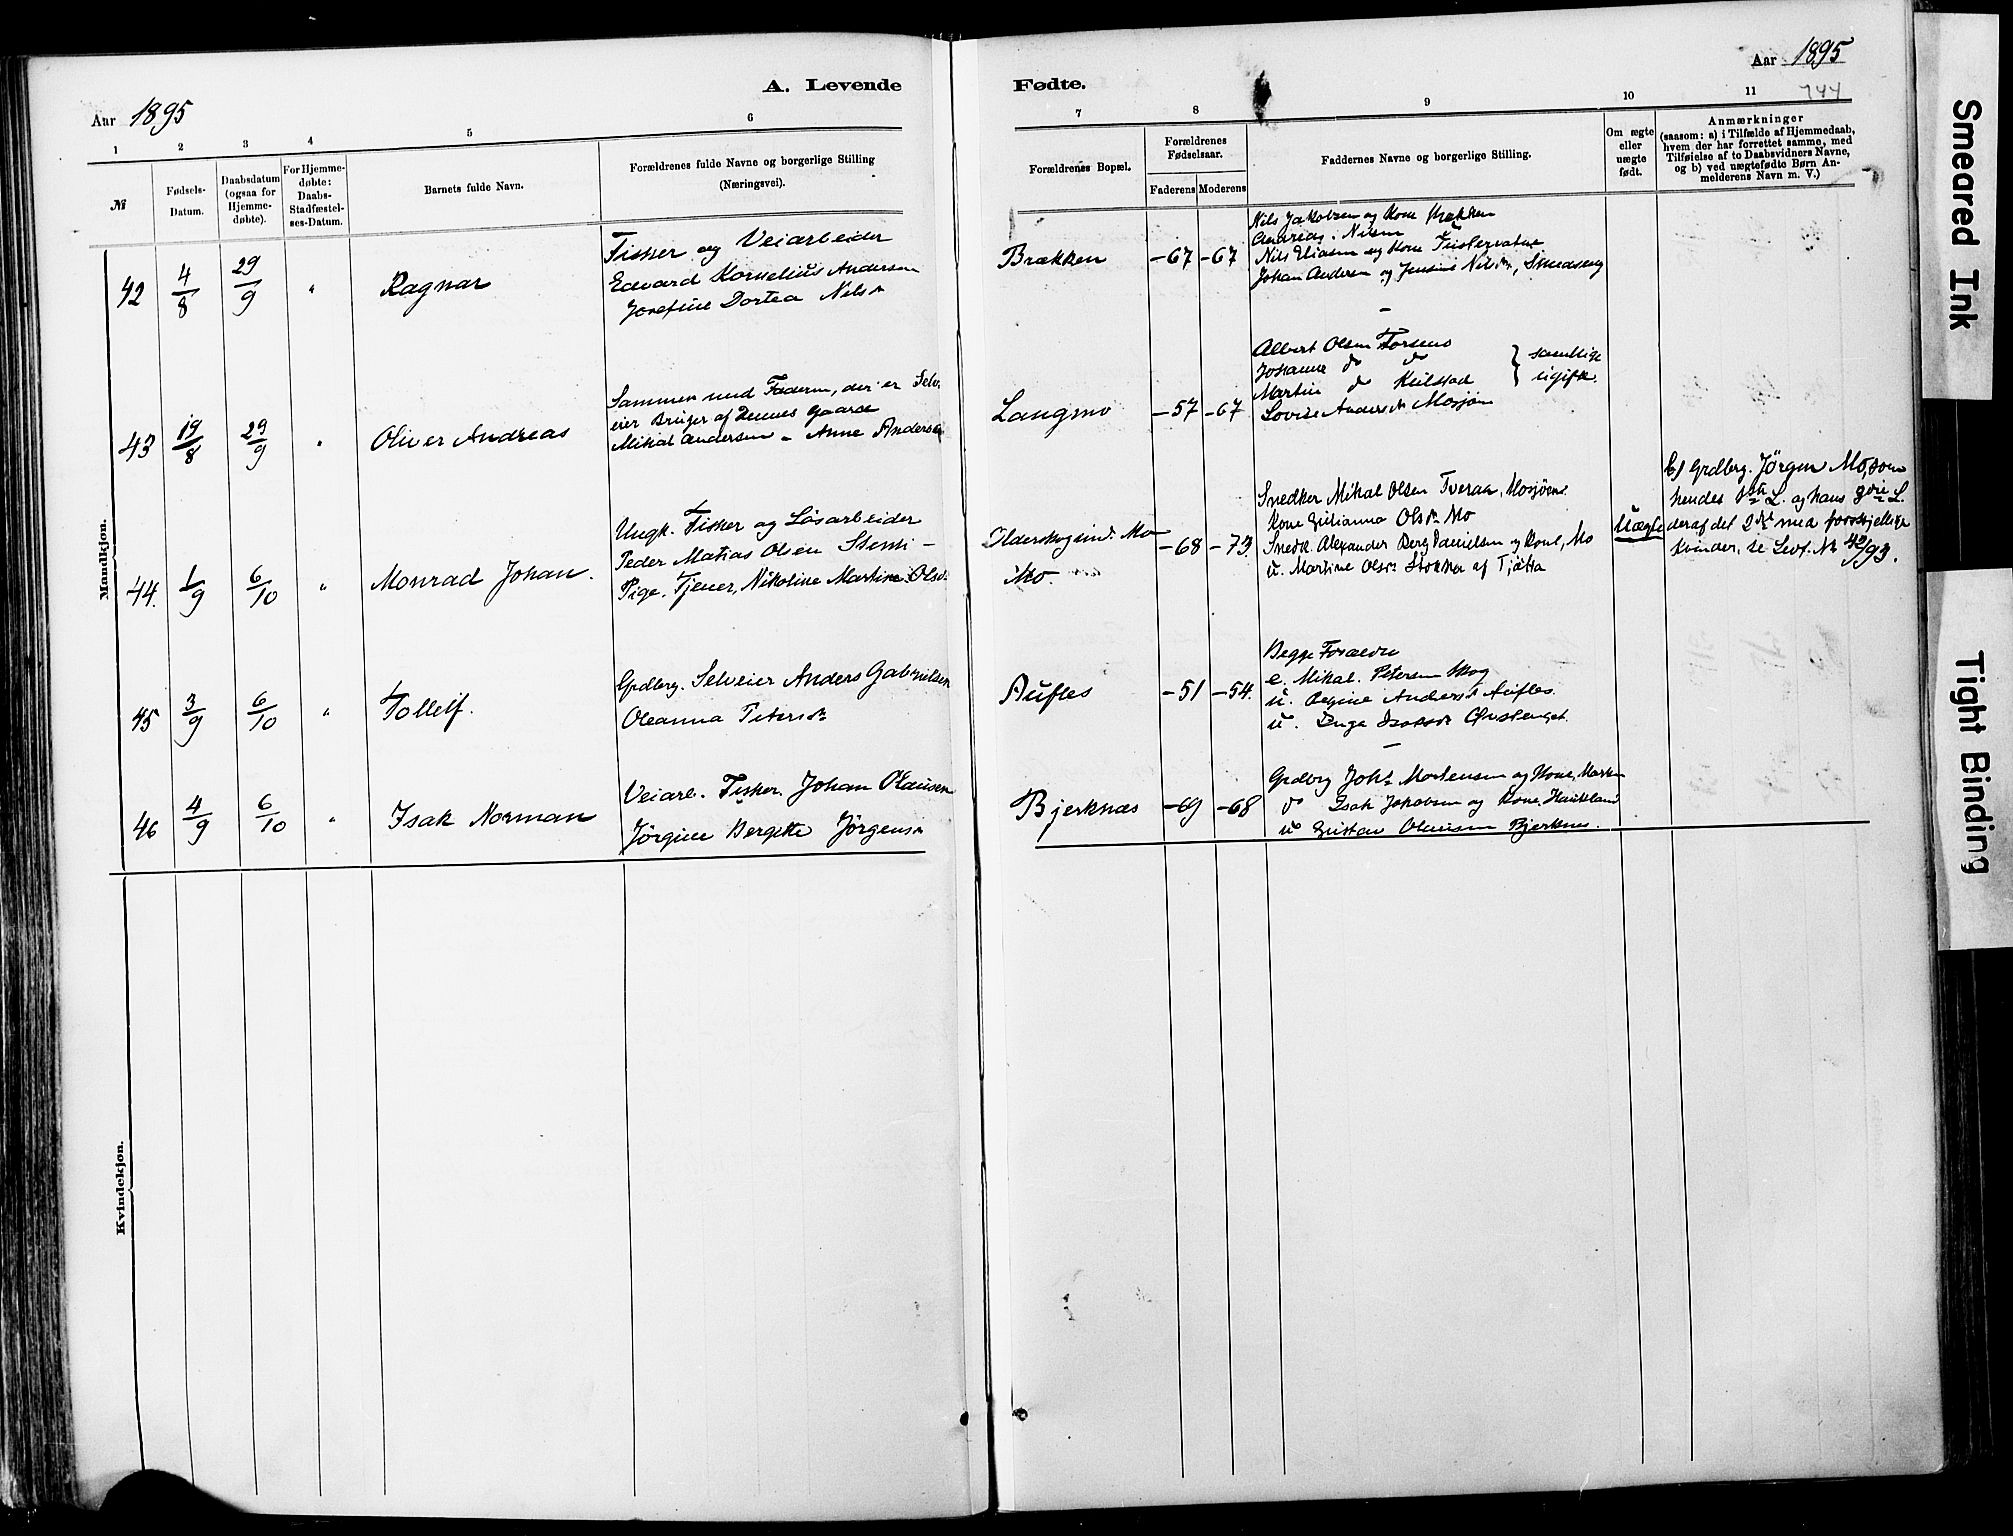 Aar 1895
A. Levende
1 2 3 4 5 6
№
Fødsels-
Datum.
Daabsdatum
(ogsaa for
Hjemme-
døbte).
For Hjemme-
døbte:
Daabs-
Stadfæstel-
ses-Datum.
Barnets fulde Navn.
Forældrenes fulde Navne og borgerlige Stilling
(Næringsvei).
Mandkjøn.
42 4/8 29/9 " Ragnar
Fisker og Veiarbeider
Edvard Kornelius Andersen
Josefine Dortea Nilsdr
43 19/8 29/9 " Oliver Andreas
Sammen med Faderen, der er Selv-
eier Bruger af Dennes Gaard
Mikal Andersen - Anne Andersdr
44. 1/9 6/10 " Monrad Johan.
Ungk. Fisker og Løsarbeider
Peder Matias Olsen
Pige. Tjener, Nikoline Martine Olsdr
45 3/9 6/10 " Tolleif.
Grdbrg. Selveier Anders Gabrielsen
Oleanna Petersdr
46 4/9 6/10 " Isak Norman
Veiarb. Fisker. Johan Olausen
Jørgine Bergitte Jørgensdr
Kvindekjøn.
Aar 1895
744
Fødte.
7 8 9 10 11
Forældrenes Bopæl.
Forældrenes
Fødselsaar.
Faderens Moderens
Faddernes Navne og borgerlige Stilling.
Om ægte
eller
uægte
født.
Anmærkninger
(saasom: a) i Tilfælde af Hjemmedaab,
hvem der har forrettet samme, med
Tilføielse af to Daabsvidners Navne,
og b) ved uægtefødte Børn An-
melderens Navn m. V.)
Brækken -67 -67
Nils Jakobsen og Kone Brækken
Andreas Nilsen
Nils Eliasen og Kone Fustervatnet
Johan Andersen og Jensine Nilsdr, Smedseng
Langmo -57 -67
Albert Olsen Forsmo
Josanne do do
Martine do Kulstad
} samtlige
ugifte.
Lovise Andersdr Mosjøen
Olderskog ind. Mo
Mo.
-68 -73
Snedker Mikal Olsen Tveraa, Mosjøen
Kone Julianna Olsdr Mo
Snedk. Alexander Berg Danielsen og Kone, Mo
u. Martine Olsdr Stokka af Tjøtta
Uægte
Grdbrg. Jørgen Mo, som
hendes 1ste L. og hans 3die L.
deraf det 2det med forskjellige
Kvinder, se Levf. № 42/93.
Aufles -51 -54.
Begge Forældre
e. Mikal Petersen Skog
u. Regine Andersdr Aufles
u. Inga
Bjerknæs -69 -68
Grdbrg Johs Mortensen og Kone, Marken
do Isak Jakobsen og Kone, Haukland
u Gustav Olausen Bjerknes.
Smeared Ink
Tight Binding